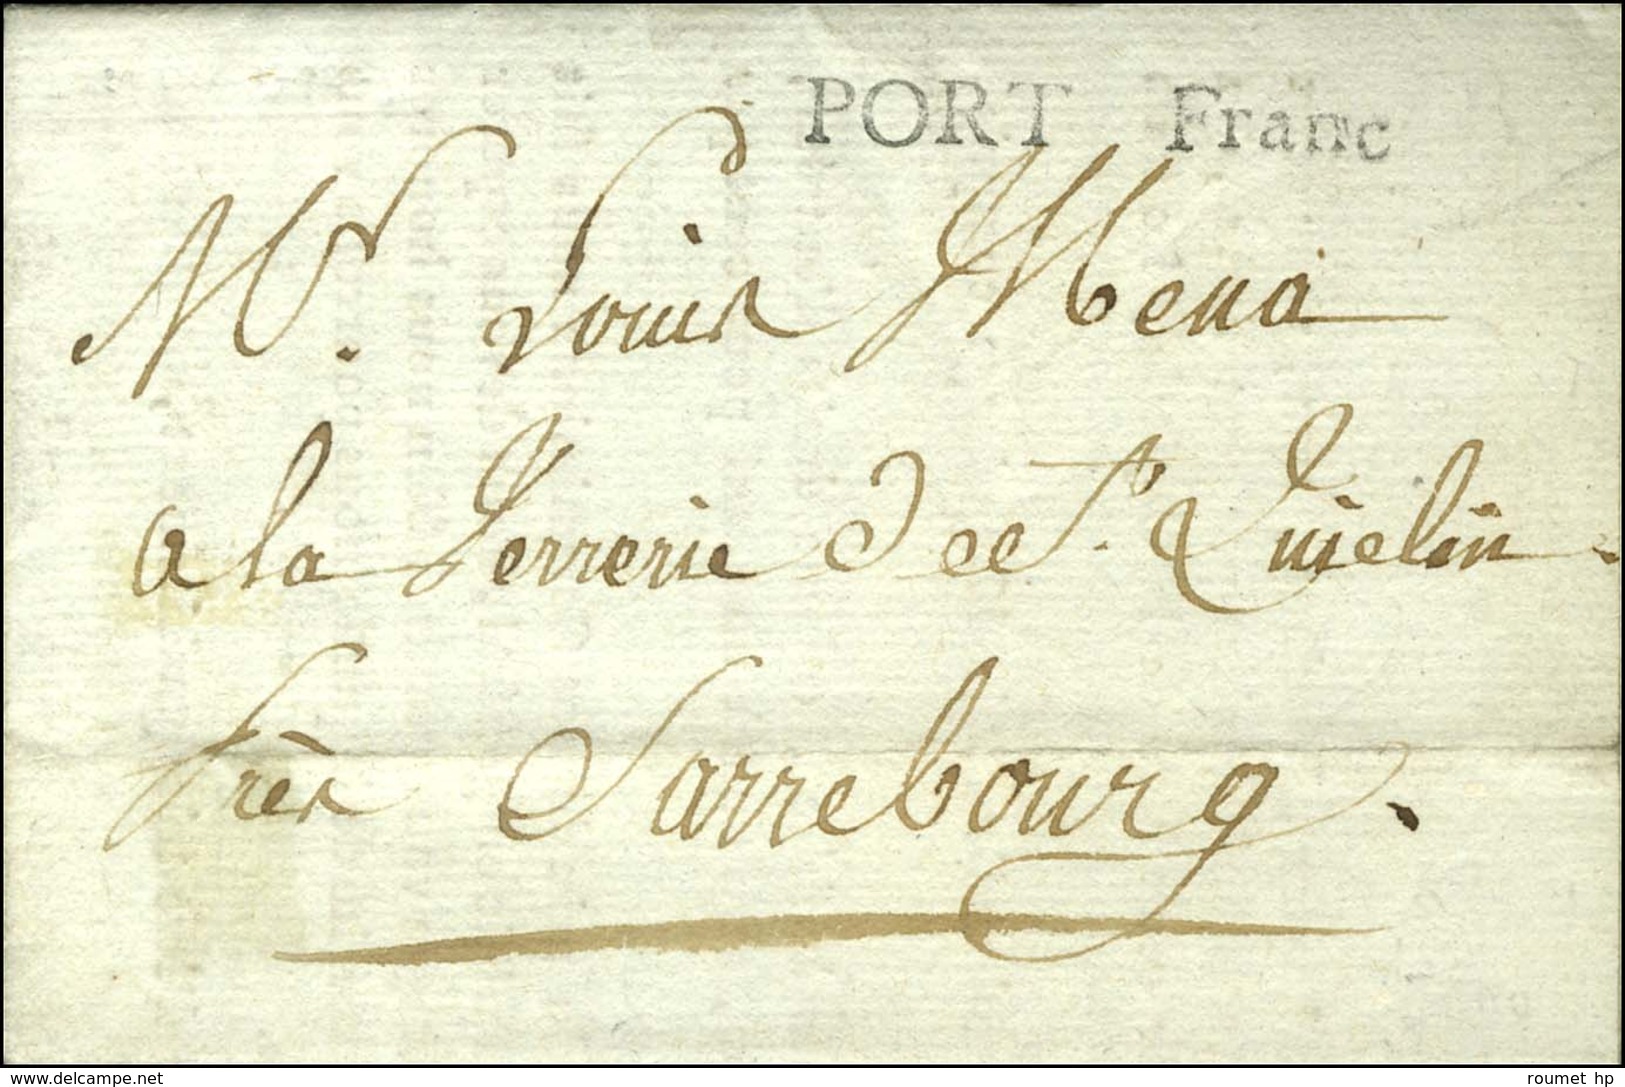 PORT Franc
Mr. Louis Mena
a la Verrerie de St. Quielin
Près Sarrebourg.
www.delcampe.net
roumet hp